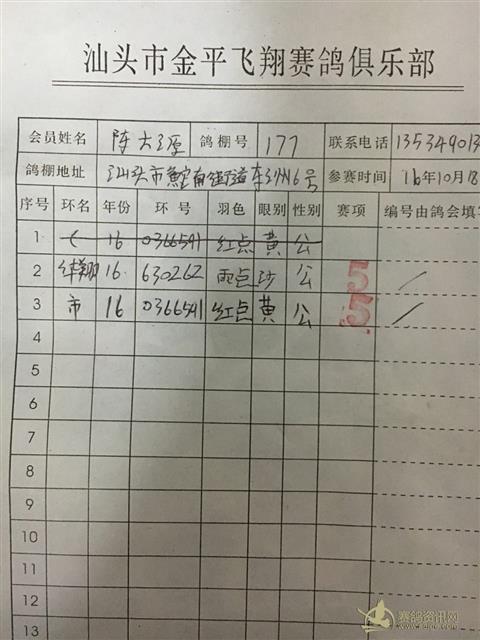 汕头市金平飞翔赛鸽俱乐部
会员姓名 陈 鸽棚号 177 联系电话 13534901
鸽棚地址 汕头市 参赛时间 16年10月18
序号 环名 年份 环号 羽色 眼别 性别 赛项 编号由鸽会填写
1 16 0366591 红点 黄 公
2 翔 16. 630262 雨点 沙 公 5
3 市 16 0366591 红点 黄 公 5
4
5
6
7
8
9
10
11
12
13
赛鸽资讯网